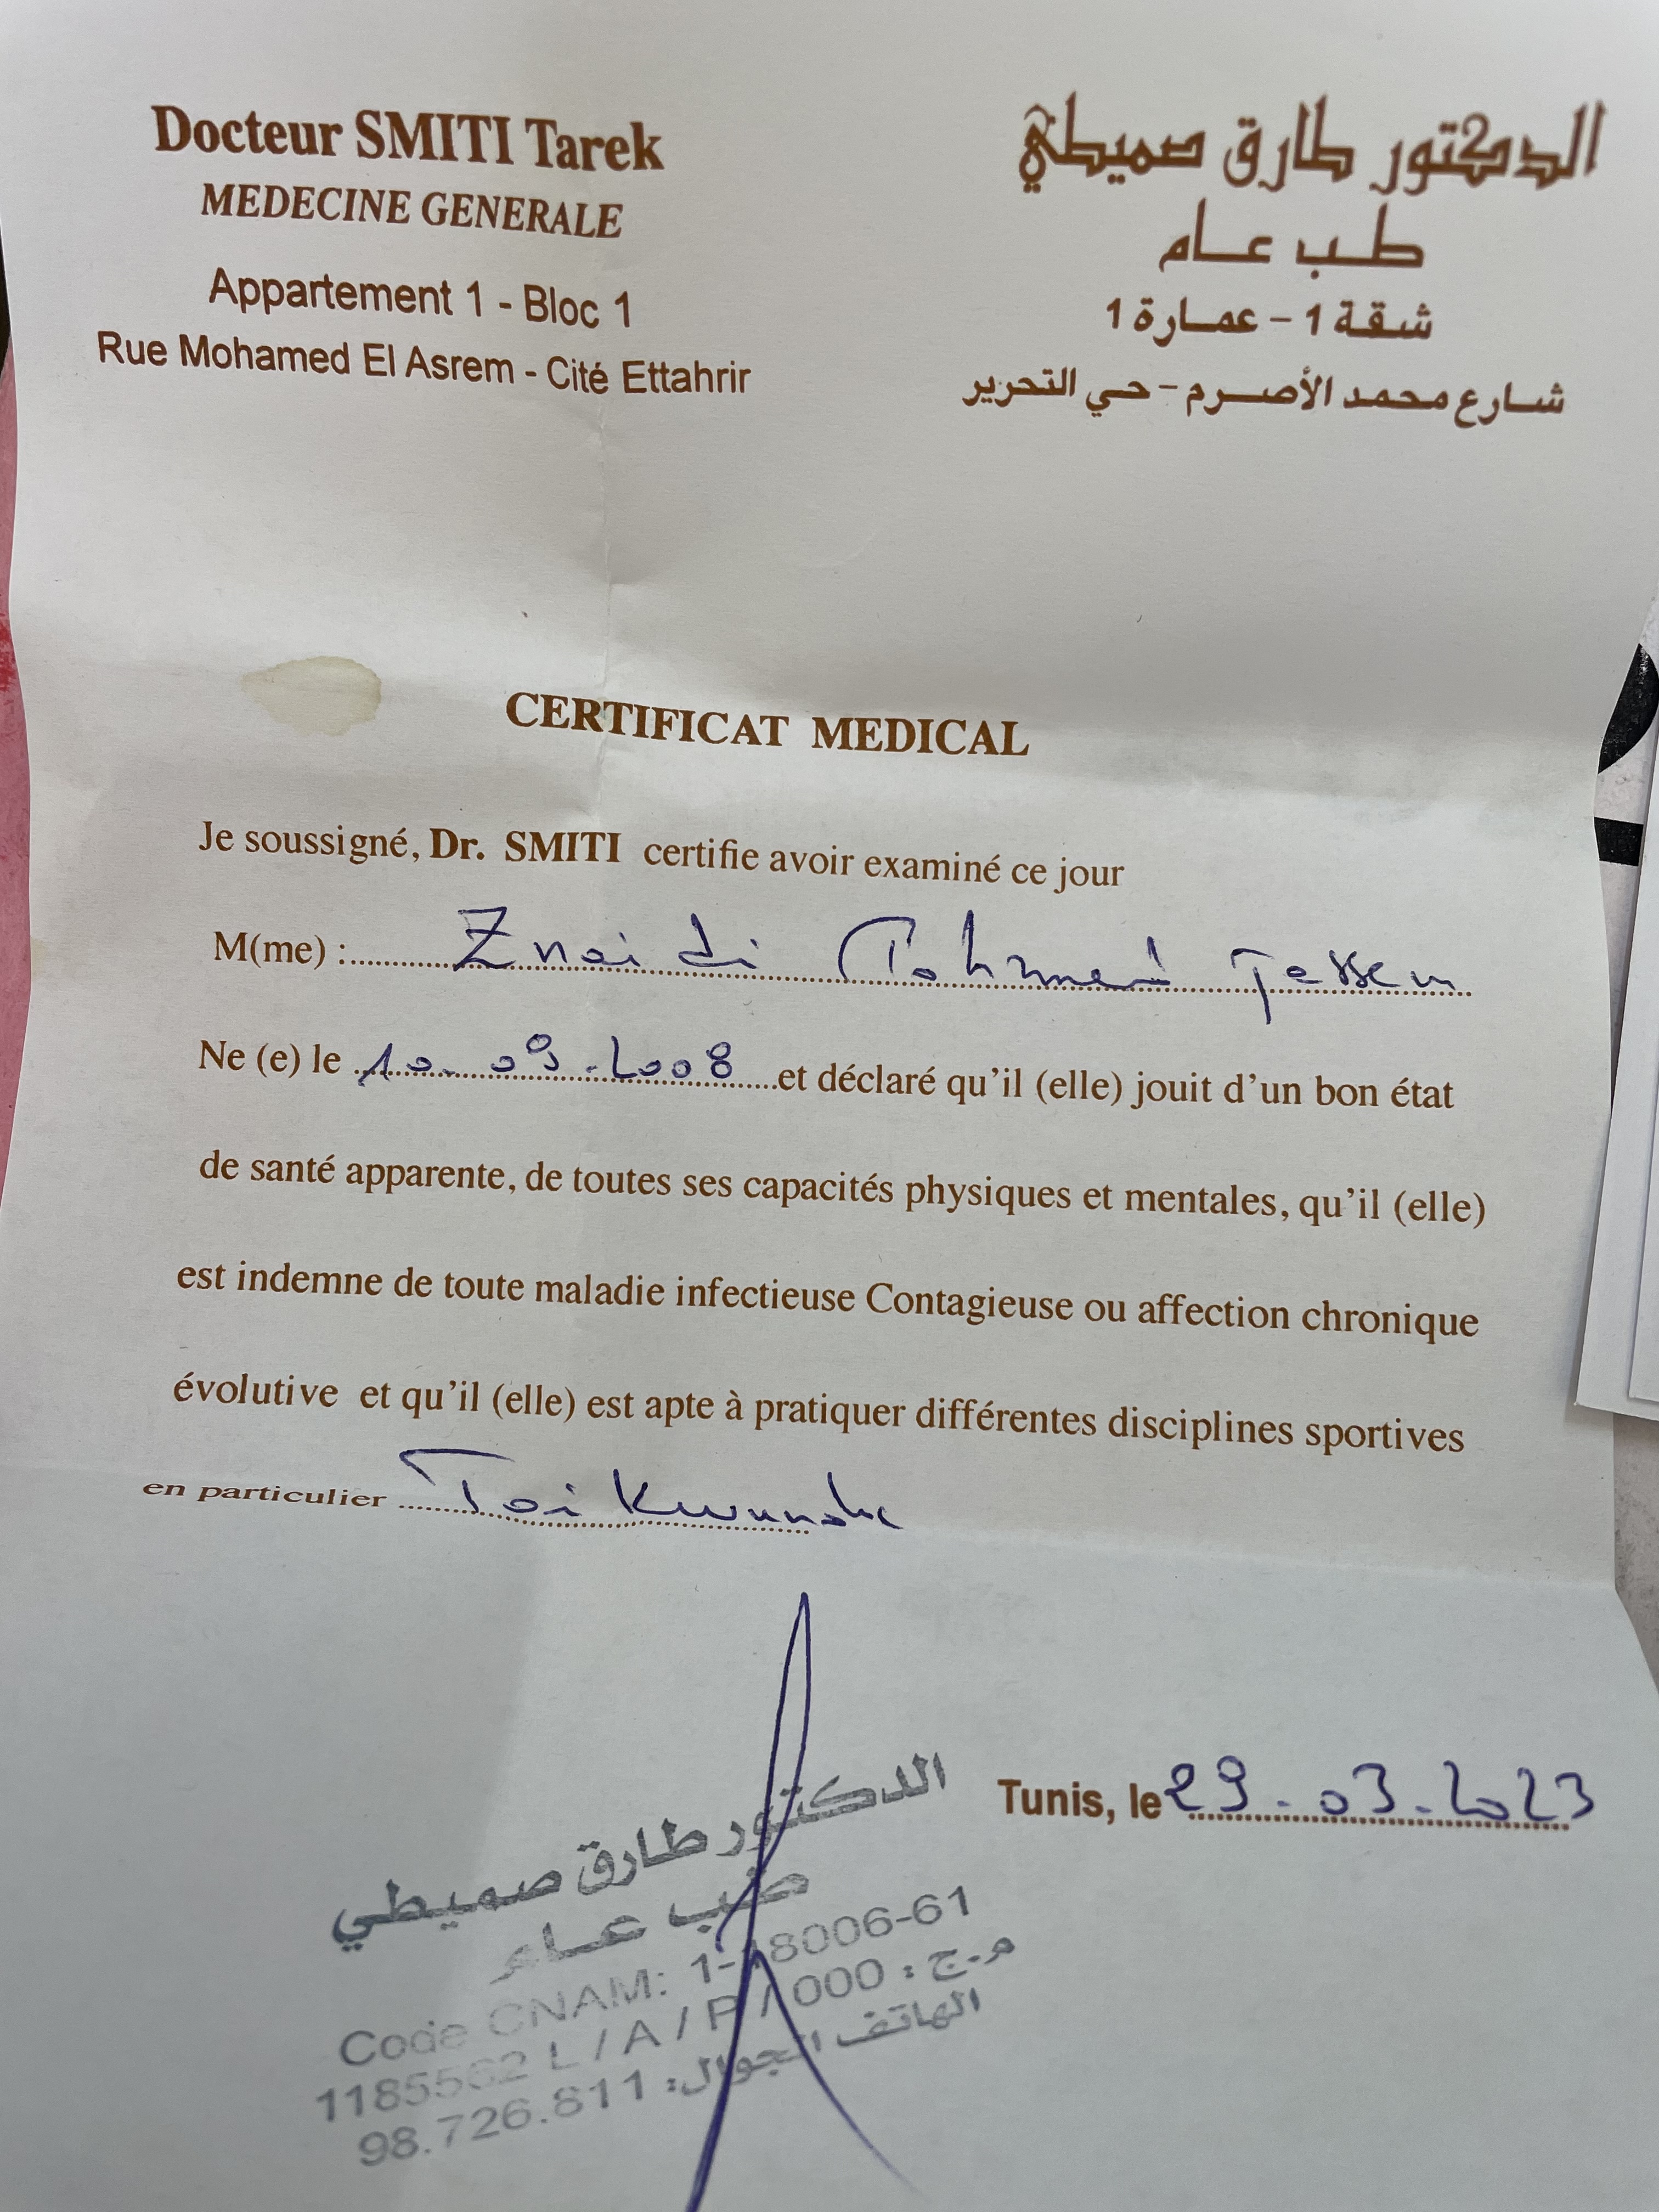 Docteur SMITI Tarek
MEDECINE GENERALE
Appartement 1 - Bloc 1
Rue Mohamed El Asrem - Cité Ettahrir
الدكتور طارق صميطي
طب عام
شقة 1 - عمارة 1
شارع محمد الأصرم - حي التحرير
CERTIFICAT MEDICAL
Je soussigné, Dr. SMITI certifie avoir examiné ce jour
M(me) : Znaidi
Ne (e) le 10.09.2008 et déclaré qu'il (elle) jouit d'un bon état
de santé apparente, de toutes ses capacités physiques et mentales, qu'il (elle)
est indemne de toute maladie infectieuse Contagieuse ou affection chronique
évolutive et qu'il (elle) est apte à pratiquer différentes disciplines sportives
en particulier
Tunis, le 29.03.2023
الدكتور طارق صميطي
طب عام
Code CNAM:
م.ج : L / A / P / 000
الهاتف الجوال: 98.726.811